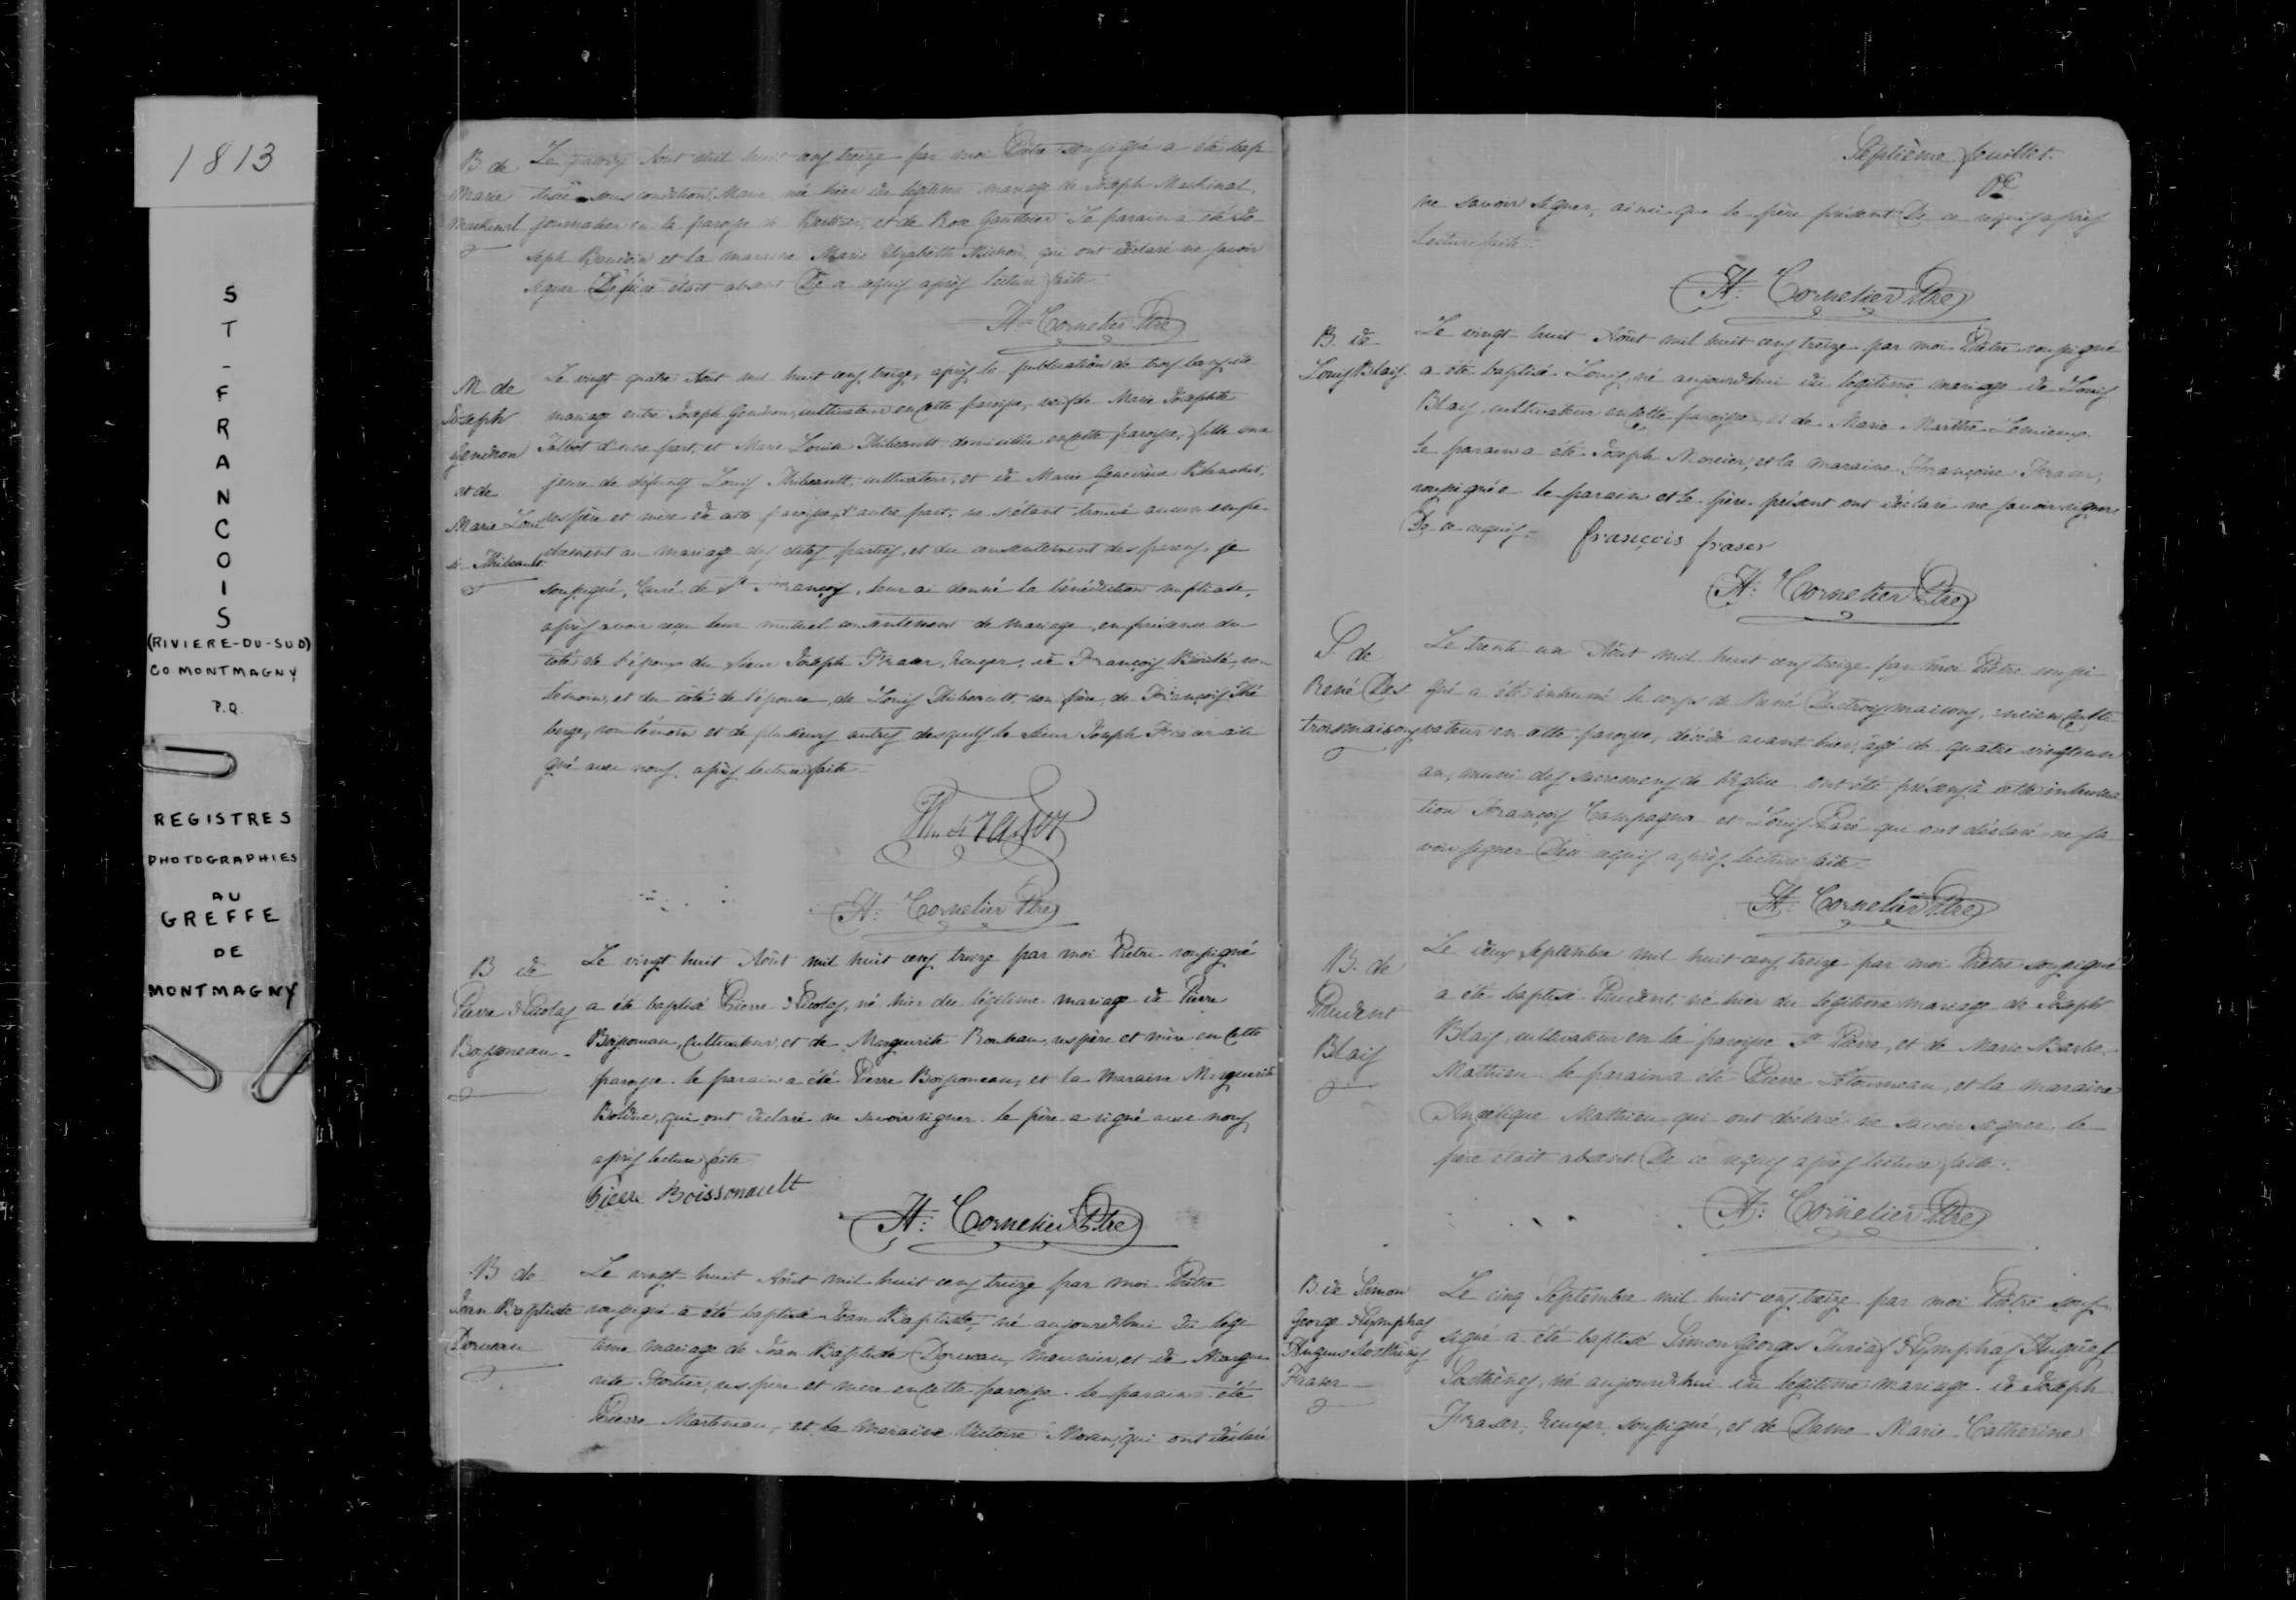 1813
ST-FRANCOIS
(RIVIERE-DU-SUD)
CO MONTMAGNY
P.Q.
REGISTRES
PHOTOGRAPHIES
AU
GREFFE
DE
MONTMAGNY
B de
Marie
Le Août mil huit cens treize par moi Prêtre soussigné a été bap
tisée sous condition Marie née hier du légitime mariage de Joseph
journalier en la paroisse de et de Rose Gauthier Le parain a été Jo
seph et la maraine Marie Elizabeth qui ont déclaré ne savoir
signer Le père étoit absent De ce requis après lecture faite
H: Cornelier Ptre
M de
Joseph
Gendron
et de
Marie Loui
se Thibault
Le vingt quatre Août mil huit cens treize, après la publication de trois bans de
mariage entre Joseph Gendron, cultivateur en cette paroisse, veuf de Marie Josephte
Talbot d'une part, et Marie Louise Thibeault domiciliée en cette paroisse, fille ma
jeure de défunts Louis Thibeault, cultivateur, et de Marie Geneviève Blanchet,
ses père et mère de cette paroisse, d'autre part, ne s'étant trouvé aucun empe
chement au mariage des dites parties, et du consentement des parens, je
soussigné, Curé de St François, leur ai donné la bénédiction nuptiale,
après avoir reçu leur mutuel consentement de mariage, en présence du
côté de l'époux du Sieur Joseph Fraser, Ecuyer, de François son
témoin, et du côté de l'épouse, de Louis Thibeault, son frère, de François Thé
berge, son témoin et de plusieurs autres desquels le Sieur Joseph Fraser a si
gné avec nous, après lecture faite
H: Cornelier Ptre
B de
Pierre Nicolas
Boissoneau
Le vingt huit Août mil huit cens treize par moi Prêtre soussigné
a été baptisé Pierre Nicolas, né hier du légitime mariage de Pierre
Boissoneau, Cultivateur, et de Marguerite ses père et mère en Cette
paroisse. le parain a été Pierre Boissoneau, et la Maraine Marguerite
Bolduc, qui ont déclaré ne savoir signer. le père a signé avec nous,
après lecture faite
Pierre Boissonault
H: Cornelier Ptre
B de
Jean Baptiste
Le vingt huit Août mil huit cens treize par moi Prêtre
soussigné a été baptisé Jean Baptiste, né aujourdhui du légi
time mariage de Jean Baptiste meunier, et de Margue
rite Fortier, ses père et mère en cette paroisse. le parain a été
Pierre Martineau, et la Maraine Victoire Morin, qui ont déclaré
Septième feuillet.
ne savoir signer, ainsi que le père présent De ce requis après
lecture faite.
H: Cornelier Ptre
B. de
Louis Blais
Le vingt huit Août mil huit cens treize par moi Prêtre soussigné
a été baptisé Louis, né aujourdhui du légitime mariage de Louis
Blais, cultivateur en cette paroisse, et de Marie Marthe Lemieux.
le parain a été Joseph Mercier, et la maraine Françoise Fraser,
soussignée. le parain et le père présent ont déclaré ne savoir signer
De ce requis
françois fraser
H: Cornelier Ptre
S. de
René Des
troismaisons
Le trente un Août mil huit cens treize par moi Prêtre soussi
gné a été inhumé le corps de René Destroismaisons, ancien Culti
vateur en cette paroisse, décédé avant hier, âgé de quatre vingt un
an, muni des sacremens de l'Eglise. ont été présens à cette inhuma
tion François Campagna et Louis Paré qui ont déclaré ne sa
voir signer De ce requis après lecture faite
H: Cornelier Ptre
B. de
Prudent
Blais
Le deux Septembre mil huit cens treize par moi Prêtre soussigné
a été baptisé Prudent, né hier du légitime mariage de Joseph
Blais, cultivateur en la paroisse St Pierre, et de Marie Barbe
Mathieu. le parain a été Pierre Létourneau, et la maraine
Angélique Mathieu qui ont déclaré ne savoir signer. le
père étoit absent. De ce requis après lecture faite.
H: Cornelier Ptre
B. de Simon
George Nymphas
Fraser
Le cinq Septembre mil huit cens treize par moi Prêtre sous
signé a été baptisé Simon Georges Nymphas
Sosthènes, né aujourdhui du légitime mariage de Joseph
Fraser, Ecuyer, soussigné, et de Dame Marie Catherine